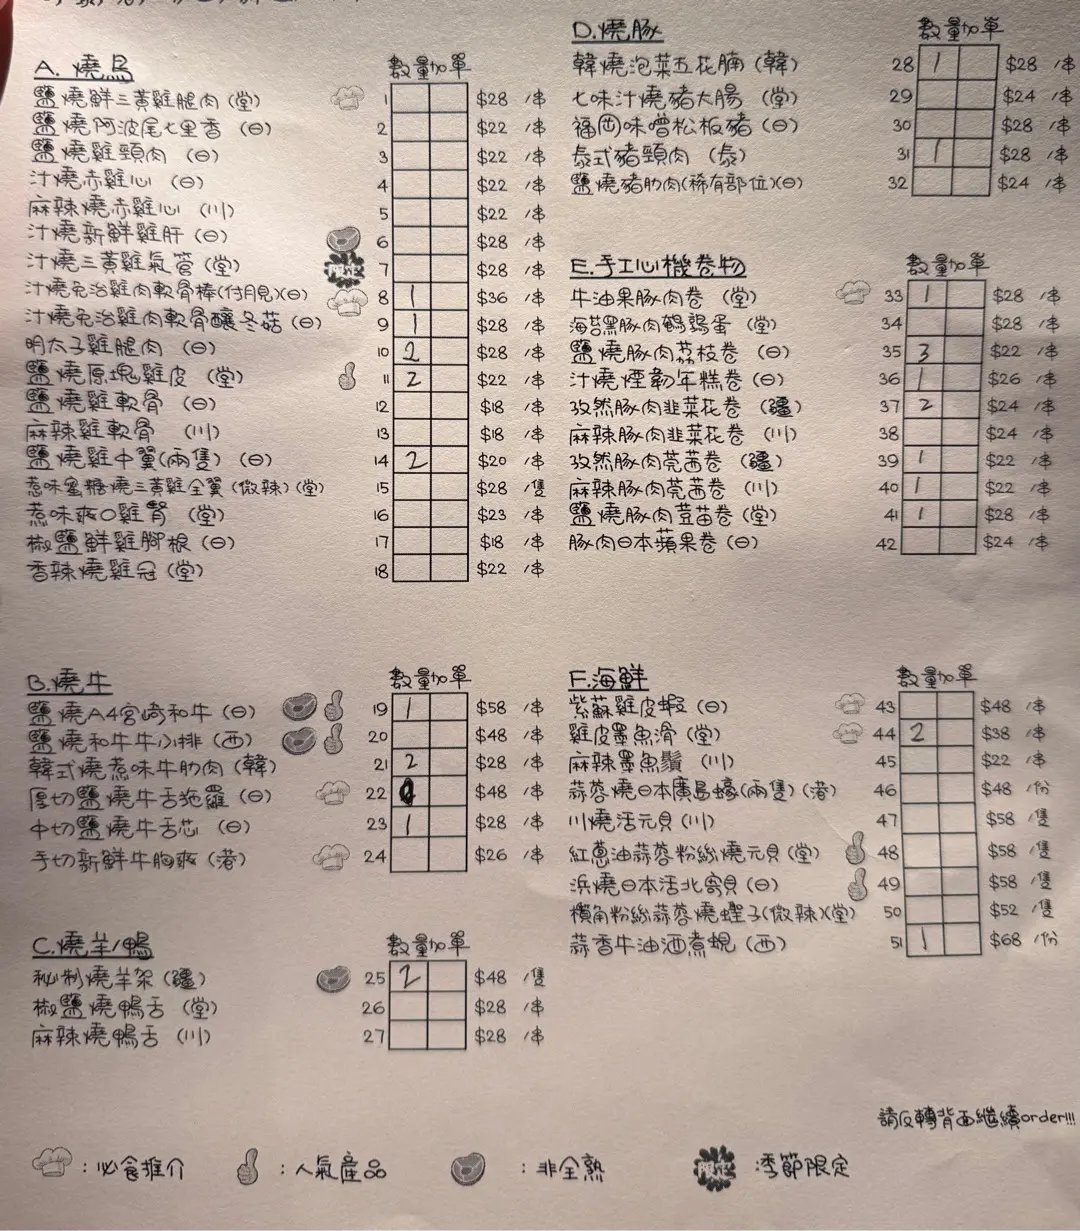 A. 燒鳥 數量 加單
鹽燒鮮三黃雞腿肉 (堂) 1 $28 /串
鹽燒阿波尾七里香 (日) 2 $22 /串
鹽燒雞頸肉 (日) 3 $22 /串
汁燒赤雞心 (日) 4 $22 /串
麻辣燒赤雞心 (川) 5 $22 /串
汁燒新鮮雞肝 (日) 6 $28 /串
汁燒三黃雞氣管 (堂) 限定 7 $28 /串
汁燒免治雞肉軟骨棒(付月見)(日) 8 1 $36 /串
汁燒免治雞肉軟骨釀冬菇 (日) 9 1 $28 /串
明太子雞腿肉 (日) 10 2 $28 /串
鹽燒原塊雞皮 (堂) 11 2 $22 /串
鹽燒雞軟骨 (日) 12 $18 /串
麻辣雞軟骨 (川) 13 $18 /串
鹽燒雞中翼(兩隻) (日) 14 2 $20 /串
惹味蜜糖燒三黃雞全翼 (微辣) (堂) 15 $28 /隻
惹味爽口雞腎 (堂) 16 $23 /串
椒鹽鮮雞腳根 (日) 17 $18 /串
香辣燒雞冠 (堂) 18 $22 /串
B. 燒牛 數量 加單
鹽燒A4宮崎和牛 (日) 19 1 $58 /串
鹽燒和牛牛小排 (西) 20 $48 /串
韓式燒惹味牛肋肉 (韓) 21 2 $28 /串
厚切鹽燒牛舌拖羅 (日) 22 $48 /串
中切鹽燒牛舌芯 (日) 23 1 $28 /串
手切新鮮牛胸爽 (港) 24 $26 /串
C. 燒羊/鴨 數量 加單
秘制燒羊架 (疆) 25 2 $48 /隻
椒鹽燒鴨舌 (堂) 26 $28 /串
麻辣燒鴨舌 (川) 27 $28 /串
D. 燒豚 數量 加單
韓燒泡菜五花腩 (韓) 28 1 $28 /串
七味汁燒豬大腸 (堂) 29 $24 /串
福岡味噌松板豬 (日) 30 $28 /串
泰式豬頸肉 (泰) 31 1 $28 /串
鹽燒豬肋肉(稀有部位)(日) 32 $24 /串
E. 手工心機卷物 數量 加單
牛油果豚肉卷 (堂) 33 1 $28 /串
海苔黑豚肉鵪鶉蛋 (堂) 34 $28 /串
鹽燒豚肉荔枝卷 (日) 35 3 $22 /串
汁燒煙韌年糕卷 (日) 36 1 $26 /串
孜然豚肉韭菜花卷 (疆) 37 2 $24 /串
麻辣豚肉韭菜花卷 (川) 38 $24 /串
孜然豚肉芫茜卷 (疆) 39 1 $22 /串
麻辣豚肉芫茜卷 (川) 40 1 $22 /串
鹽燒豚肉荳苗卷 (堂) 41 1 $28 /串
豚肉日本蘋果卷 (日) 42 $24 /串
F. 海鮮 數量 加單
紫蘇雞皮蝦 (日) 43 $48 /串
雞皮墨魚滑 (堂) 44 2 $38 /串
麻辣墨魚鬚 (川) 45 $22 /串
蒜蓉燒日本廣島蠔(兩隻) (港) 46 $48 /份
川燒活元貝 (川) 47 $58 /隻
紅蔥油蒜蓉粉絲燒元貝 (堂) 48 $58 /隻
浜燒日本活北寄貝 (日) 49 $58 /隻
欖角粉絲蒜蓉燒蟶子(微辣)(堂) 50 $52 /隻
蒜香牛油酒煮蜆 (西) 51 1 $68 /份
請反轉背面繼續order!!!
：必食推介 ：人氣產品 ：非全熟 限定 ：季節限定